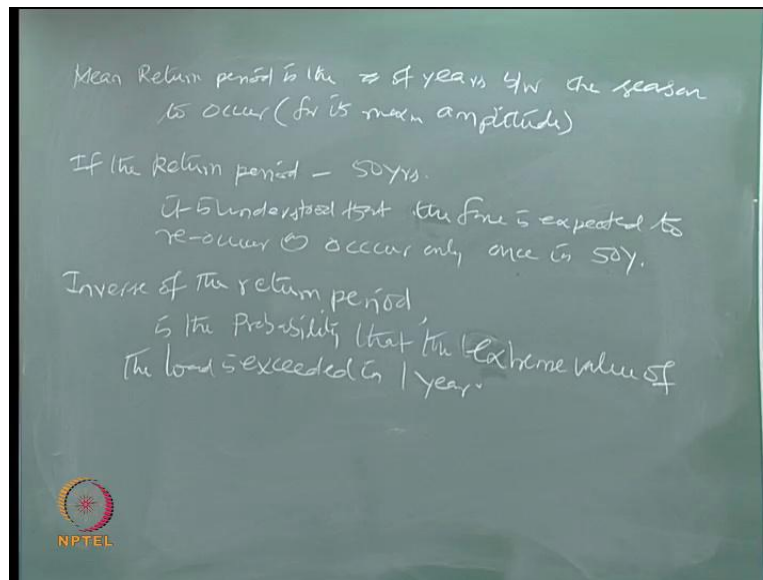 Mean Return period is the # of years b/w the season
to occur (for its maxm amplitude)
If the Return period - 50yrs.
it is understood that the same is expected to
re-occur occcur only once in 50y.
Inverse of the return period
is the Probability that the extreme value of
the load is exceeded in 1 year.
NPTEL